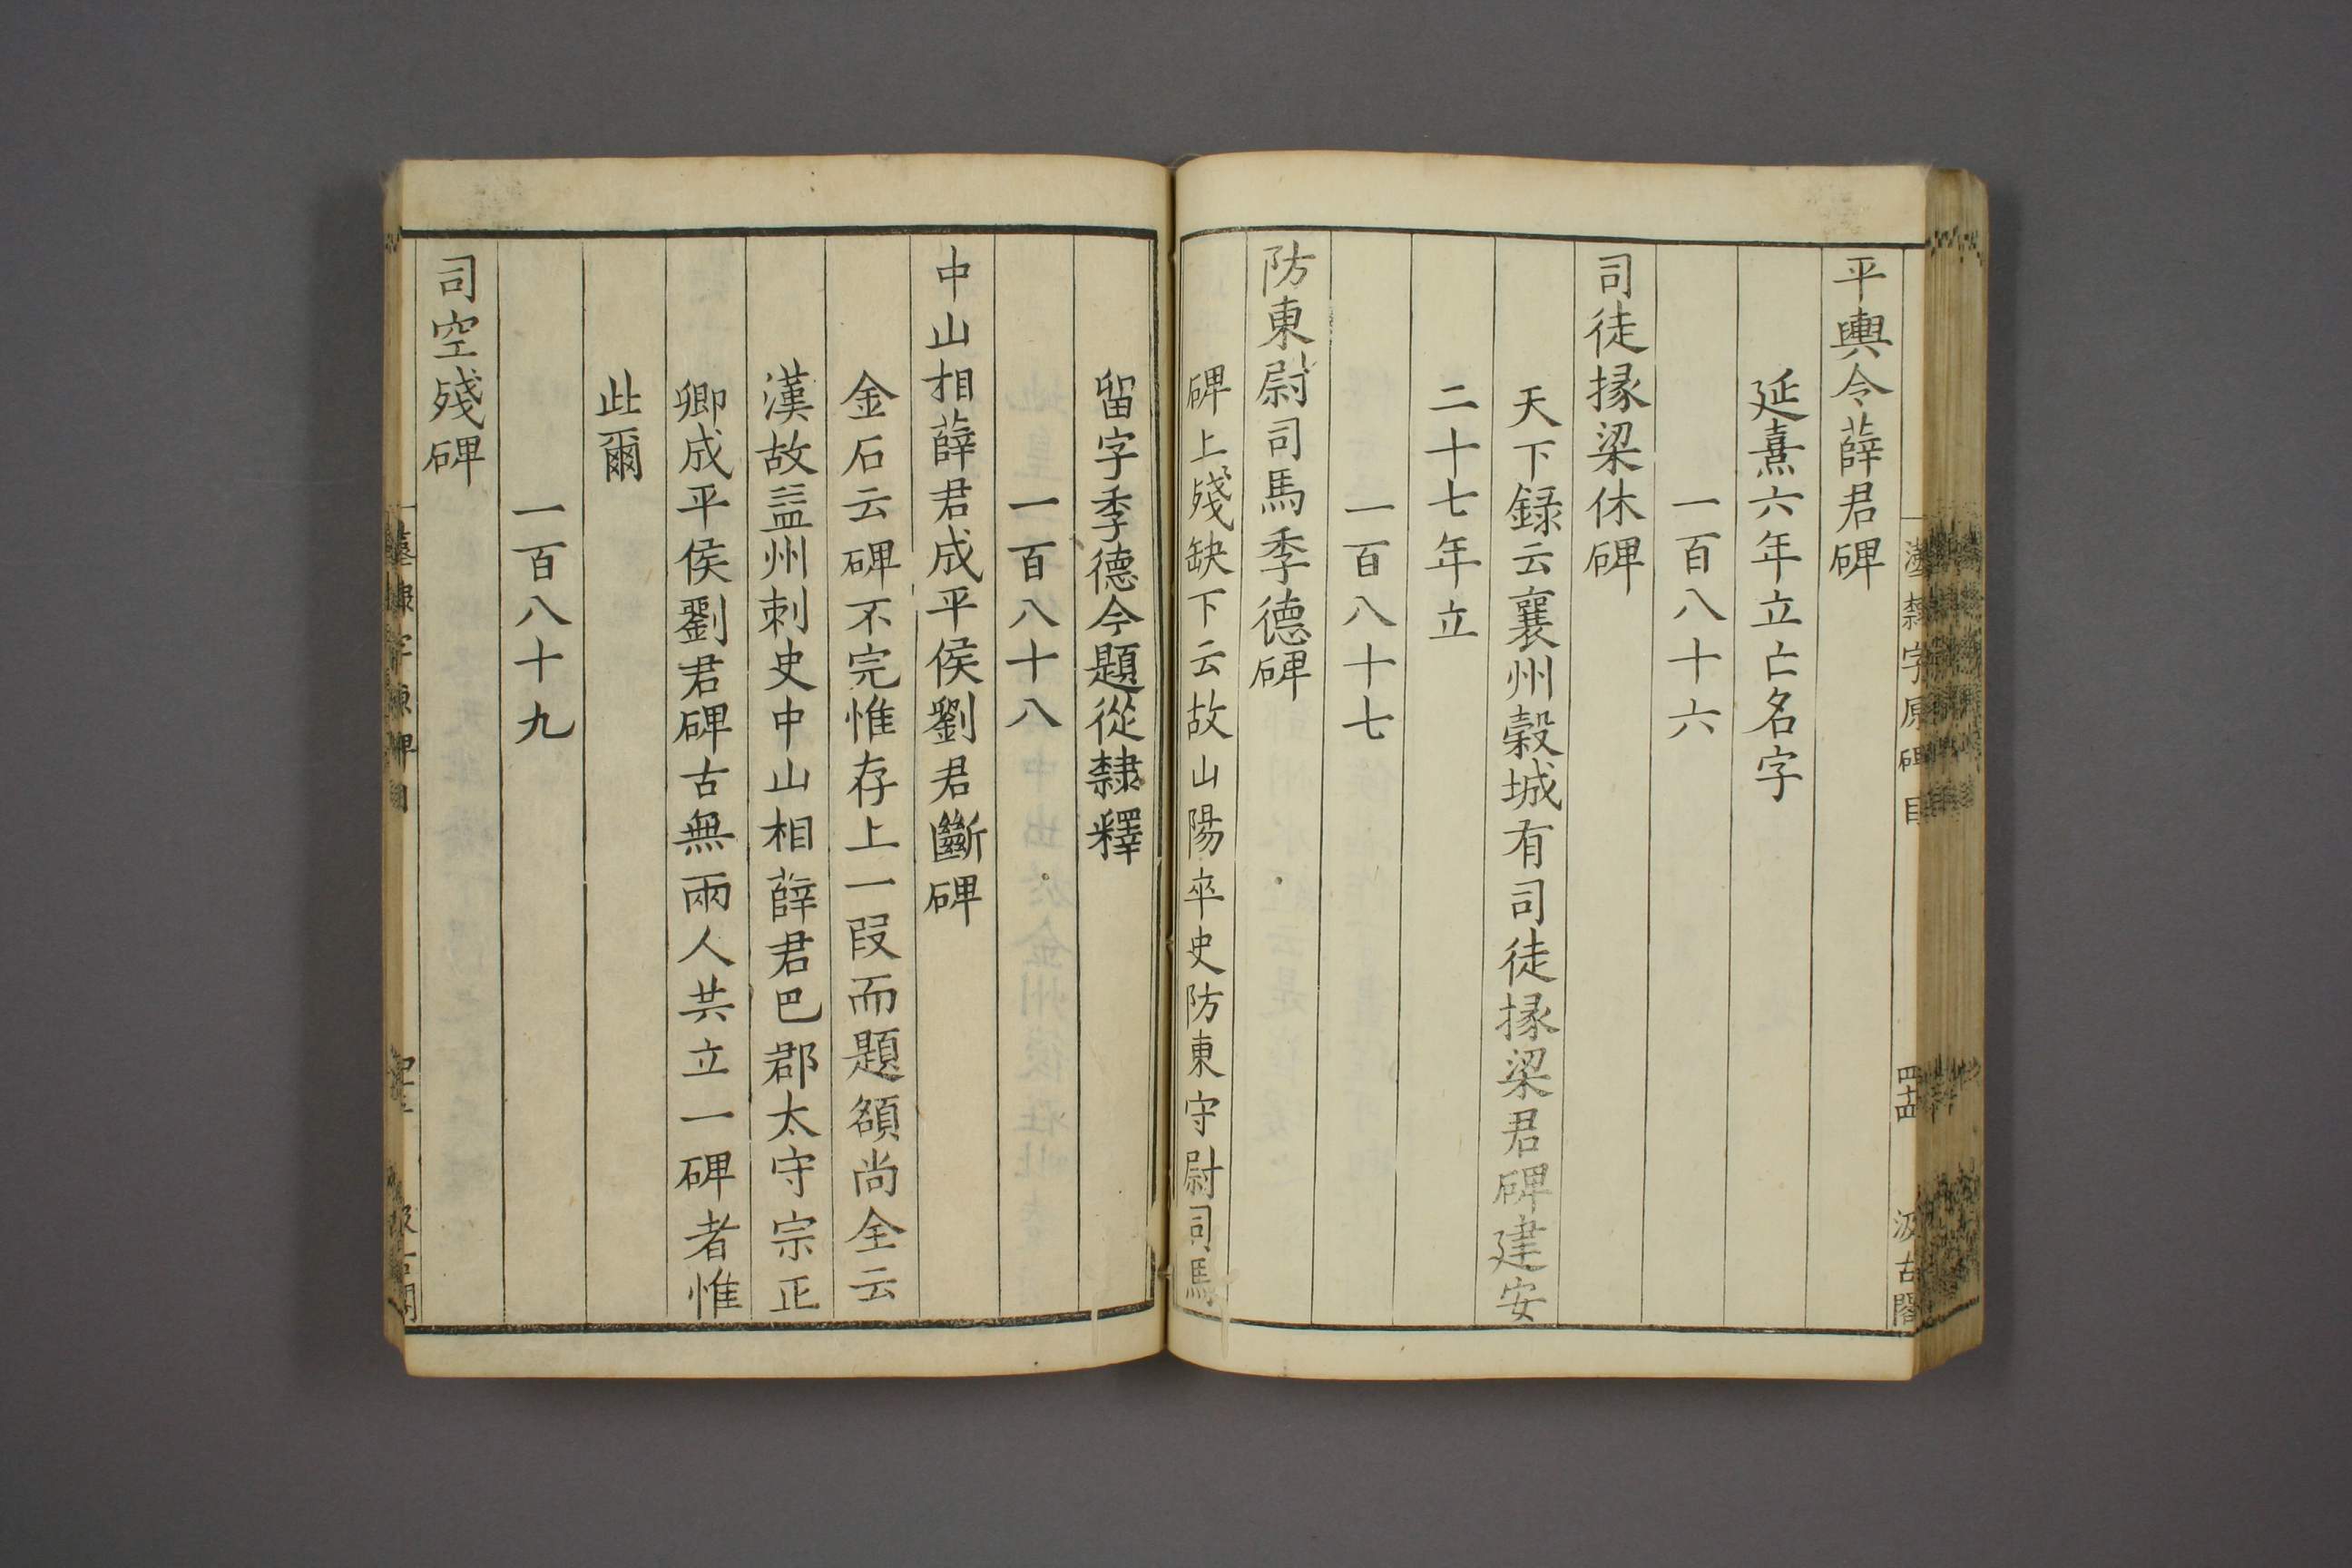 平輿令薛君碑
延熹六年立亡名字
一百八十六
司徒掾梁休碑
天下録云襄州穀城有司徒掾梁君碑建安
二十七年立
一百八十七
防東尉司馬季德碑
碑上殘缺下云故山陽卒史防東守尉司馬
留字季德今題從隸釋
一百八十八
中山相薛君成平侯劉君斷碑
金石云碑不完惟存上一段而題額尚全云
漢故益州刺史中山相薛君巴郡太守宗正
卿成平侯劉君碑古無兩人共立一碑者惟
此爾
一百八十九
司空殘碑
漢隸字原碑目
四十四
汲古閣